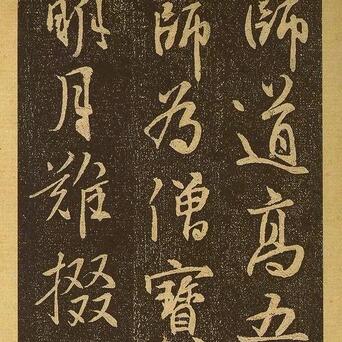 師道高五
師為僧寶
明月難掇